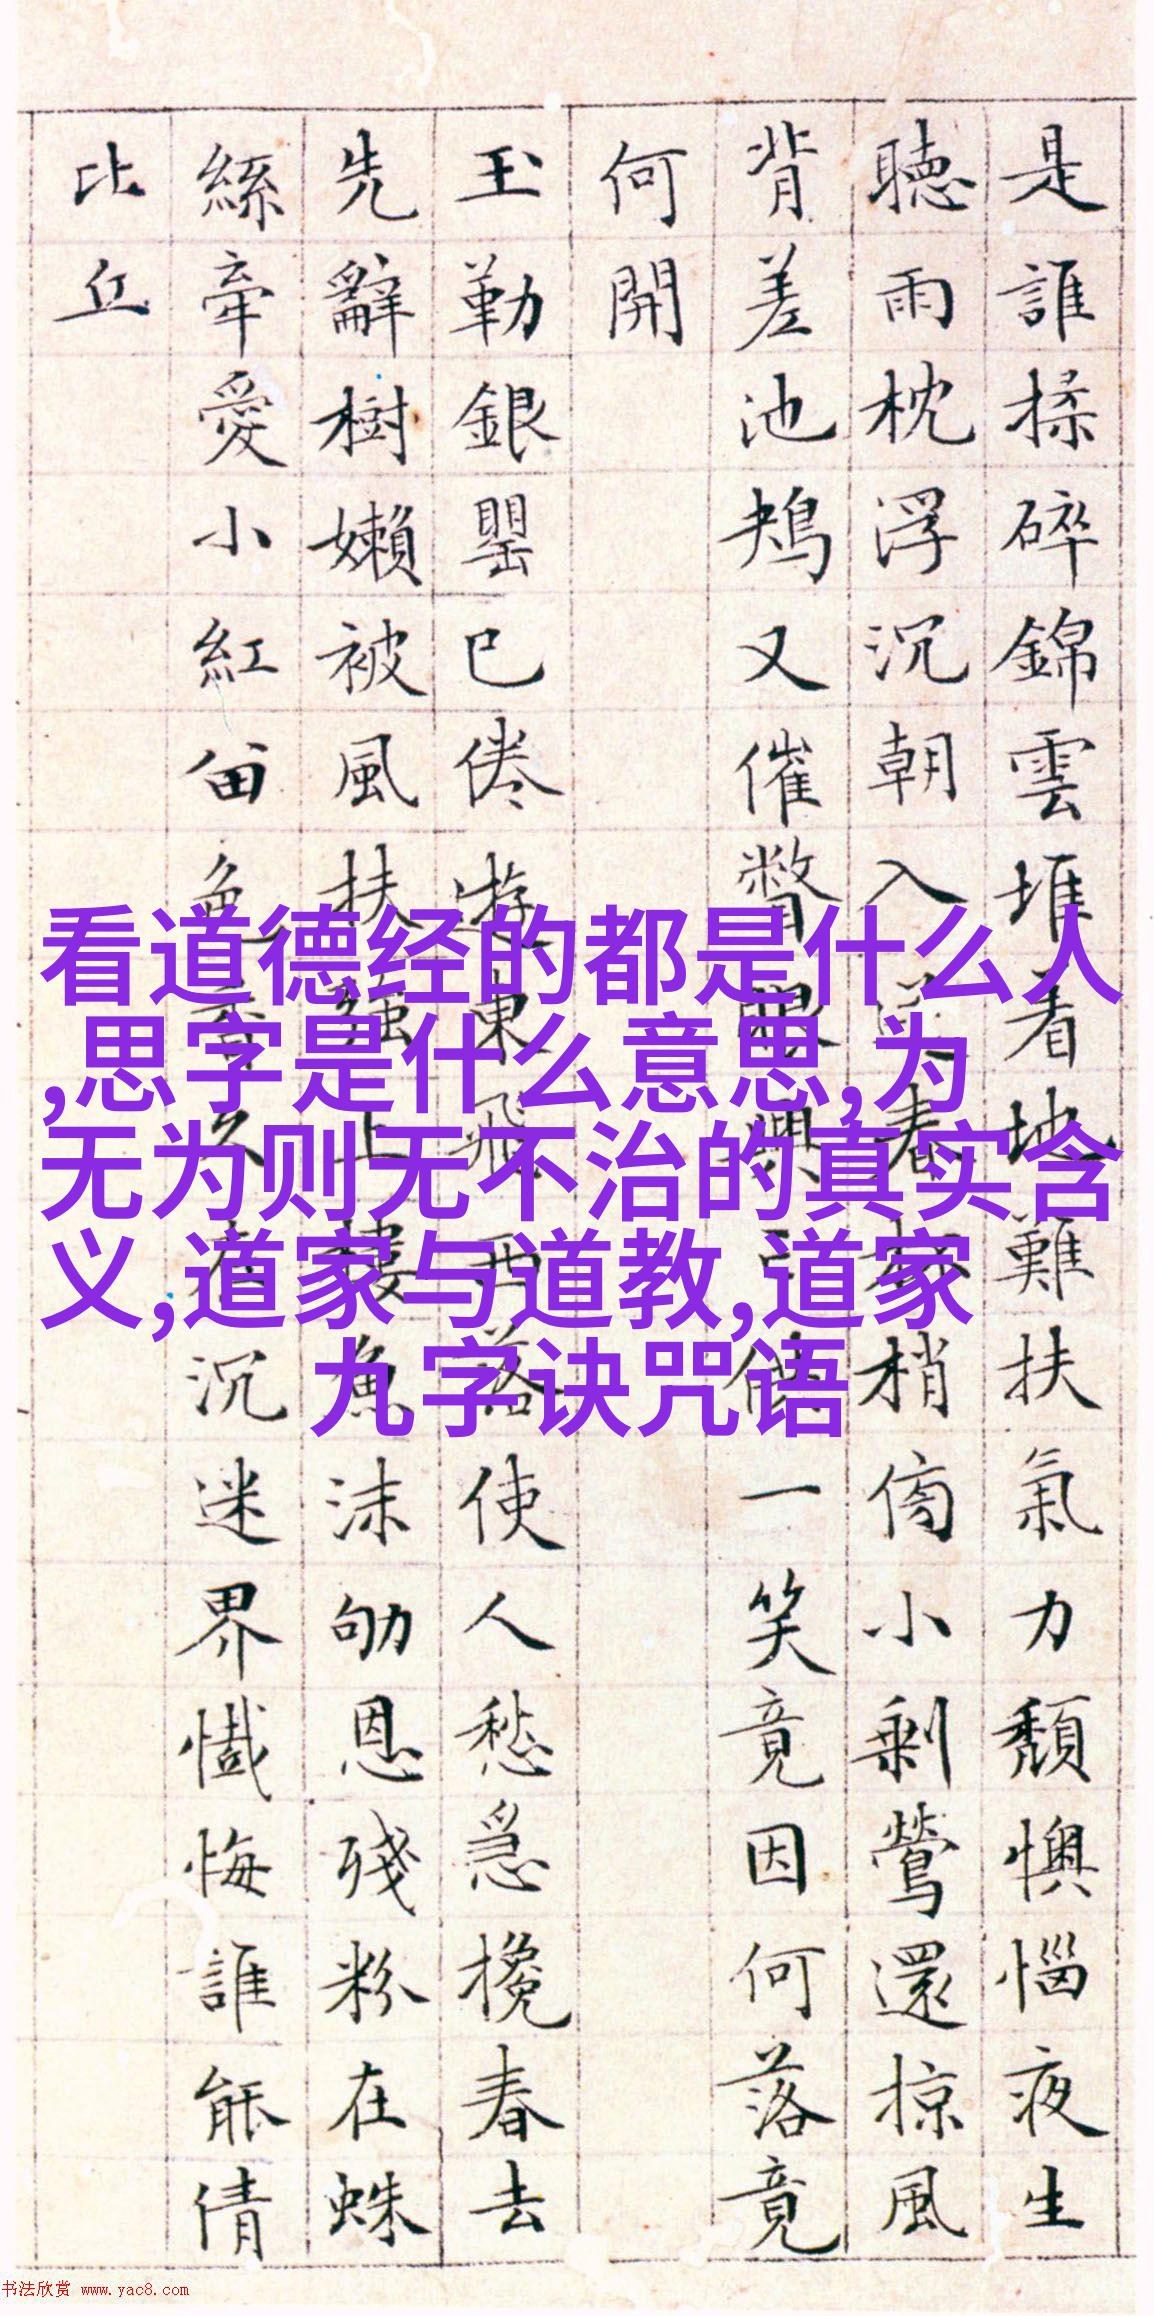 是誰揉碎錦雲堆看地難扶氣力頹懊惱夜生
聴雨枕浮沉朝入春梢傍小剩鶯還掠風
背差池又催瞥眼興一笑竟因何落竟
何開
玉勒銀罌已倦遊東飛西落使人愁急攙春去
先辭樹嬾被風扶強上樓魚沫劬恩殘粉在蛛
絲牽愛小紅留色香久沉迷界懺悔誰能倩
比丘
看道德经的都是什么人
,思字是什么意思,为
无为则无不治的真实含
义,道家与道教,道家
九字诀咒语
书法欣赏 www.yac8.com